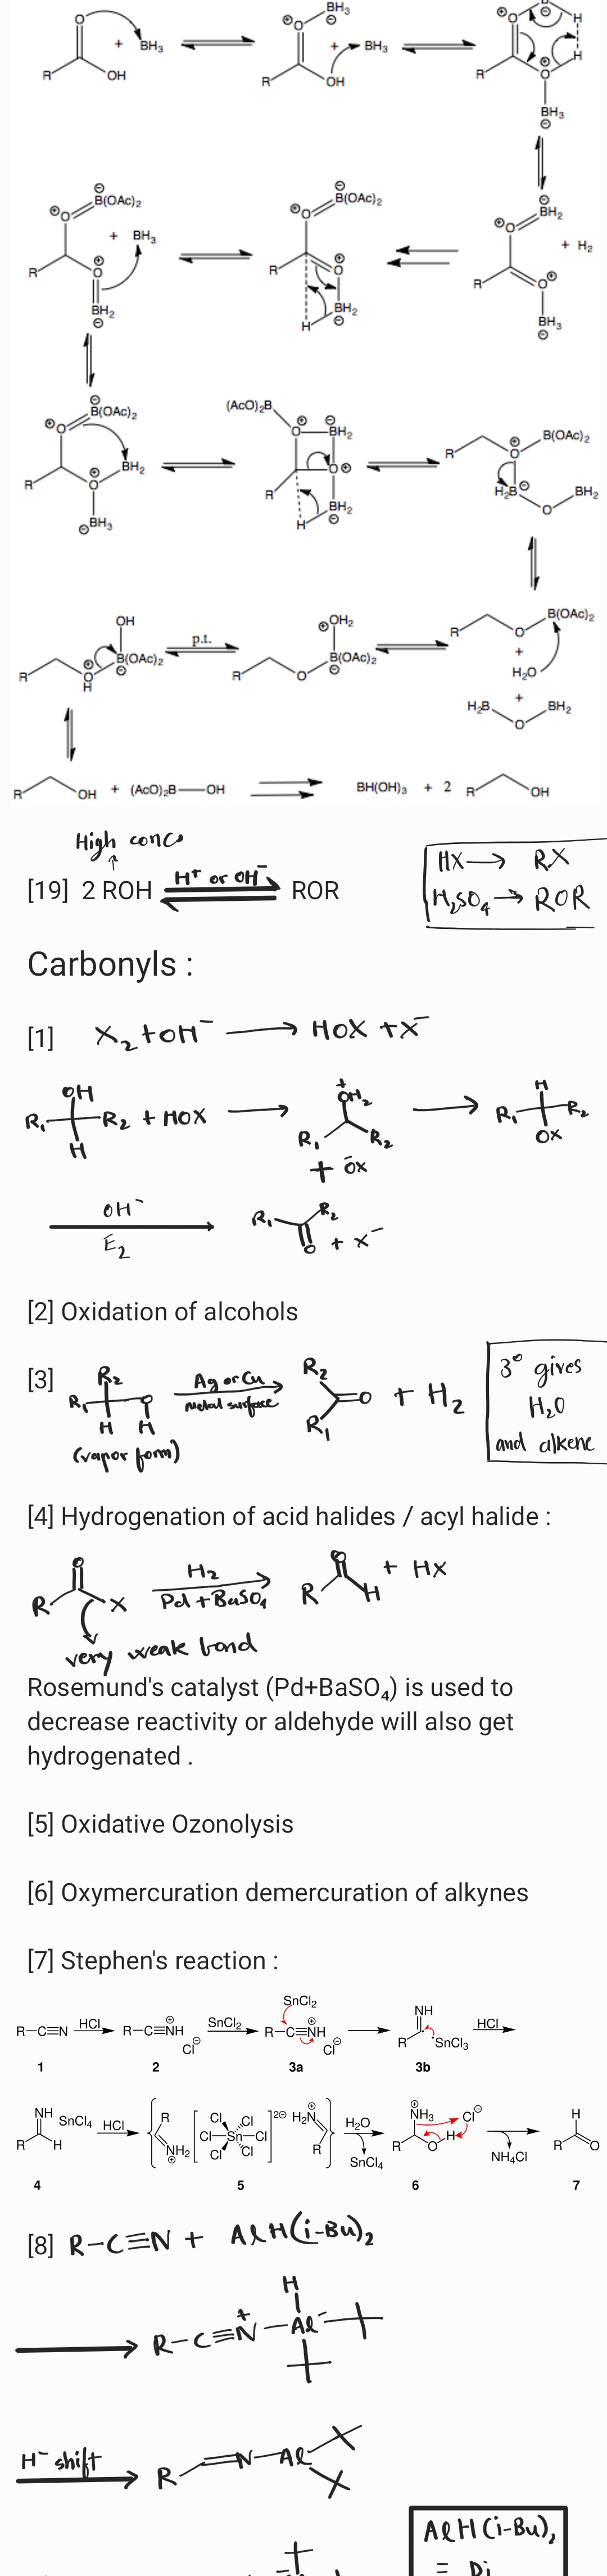 BH₃
O + BH₃
R OH
O + BH₃
R OH
O H
H
R O
BH₃
B(OAc)₂
O
+ BH₃
R O
BH₂
B(OAc)₂
O
R O
BH₂
H
BH₂
O
+ H₂
R O
BH₃
B(OAc)₂
O
BH₂
R O
BH₃
(AcO)₂B
O BH₂
O
R
BH₂
H
B(OAc)₂
R O
H₂B BH₂
O
OH
B(OAc)₂
R O
H
p.t.
OH₂
B(OAc)₂
R O
B(OAc)₂
R O
+
H₂O
+
H₂B BH₂
O
R OH + (AcO)₂B—OH BH(OH)₃ + 2 R OH
High conc
[19] 2 ROH H⁺ or OH⁻ ROR
HX → RX
H₂SO₄ → ROR
Carbonyls :
[1] X₂ + OH⁻ → HOX + X⁻
OH
R₁ R₂ + HOX →
H
+
OH₂
R₁ R₂
+ ŌX
→
H
R₁ R₂
OX
OH⁻
E₂
R₁ R₂
O + X⁻
[2] Oxidation of alcohols
[3] R₂
R₁ O
H H
(vapor form)
Ag or Cu
Metal surface
R₂
O + H₂
R₁
3° gives
H₂O
and alkene
[4] Hydrogenation of acid halides / acyl halide :
O
R X
H₂
Pd + BaSO₄
O
R H + HX
very weak bond
Rosemund's catalyst (Pd+BaSO₄) is used to
decrease reactivity or aldehyde will also get
hydrogenated .
[5] Oxidative Ozonolysis
[6] Oxymercuration demercuration of alkynes
[7] Stephen's reaction :
R−C≡N HCl R−C≡NH Cl SnCl₂ SnCl₂ R−C≡NH Cl NH R SnCl₃ HCl
1 2 3a 3b
NH R H SnCl₄ HCl R NH₂ [Cl Cl Cl−Sn−Cl Cl Cl]2⊖ H₂N R H₂O SnCl₄ NH₃ Cl R O H NH₄Cl H R O
4 5 6 7
[8] R−C≡N + AlH(i-Bu)₂
H
→ R−C≡N⁺−Al⁻
H⁻ shift
R N−Al
AlH(i-Bu)₂